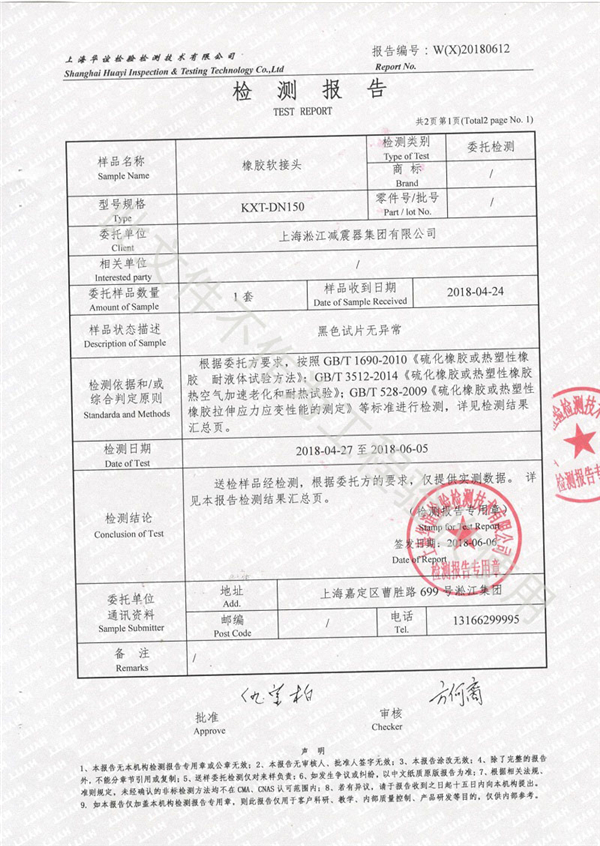 上海华谊检验检测技术有限公司
Shanghai Huayi Inspection & Testing Technology Co.,Ltd
报告编号：W(X)20180612
Report No.
检 测 报 告
TEST REPORT
共2页第1页(Total2 page No. 1)
样品名称
Sample Name
橡胶软接头
检测类别
Type of Test
委托检测
商 标
Brand
/
型号规格
Type
KXT-DN150
零件号/批号
Part / lot No.
/
委托单位
Client
上海淞江减震器集团有限公司
相关单位
Interested party
/
委托样品数量
Amount of Sample
1 套
样品收到日期
Date of Sample Received
2018-04-24
样品状态描述
Description of Sample
黑色试片无异常
检测依据和/或
综合判定原则
Standarda and Methods
根据委托方要求，按照 GB/T 1690-2010《硫化橡胶或热塑性橡
胶 耐液体试验方法》；GB/T 3512-2014《硫化橡胶或热塑性橡胶
热空气加速老化和耐热试验》；GB/T 528-2009《硫化橡胶或热塑性
橡胶拉伸应力应变性能的测定》等标准进行检测，详见检测结果
汇总页。
检测日期
Date of Test
2018-04-27 至 2018-06-05
检测结论
Conclusion of Test
送检样品经检测，根据委托方的要求，仅提供实测数据。 详
见本报告检测结果汇总页。
（检测报告专用章）
Stamp for Test Report
签发日期：2018-06-06
Date of Report
检测报告专用章
委托单位
通讯资料
Sample Submitter
地址
Add.
上海嘉定区曹胜路 699 号淞江集团
邮编
Post Code
/
电话
Tel.
13166299995
备 注
Remarks
/
批准
Approve
审核
Checker
声 明
1、本报告无本机构检测报告专用章或公章无效；2、本报告无审核人、批准人签字无效；3、本报告涂改无效；4、除了完整的报告
外，不能分章节引用或复制；5、送样委托检测仅对来样负责；6、如发生争议或纠纷，以中文纸质原版报告为准；7、根据相关法规、
准则规定，未经确认的非标检测方法均不在 CMA、CNAS 认可范围内；8、若有异议，请于报告收到之日起十五日内向本机构提出。
9. 如本报告仅加盖本机构检测报告专用章，则此报告仅用于客户科研、教学、内部质量控制、产品研发等目的，仅供内部参考。